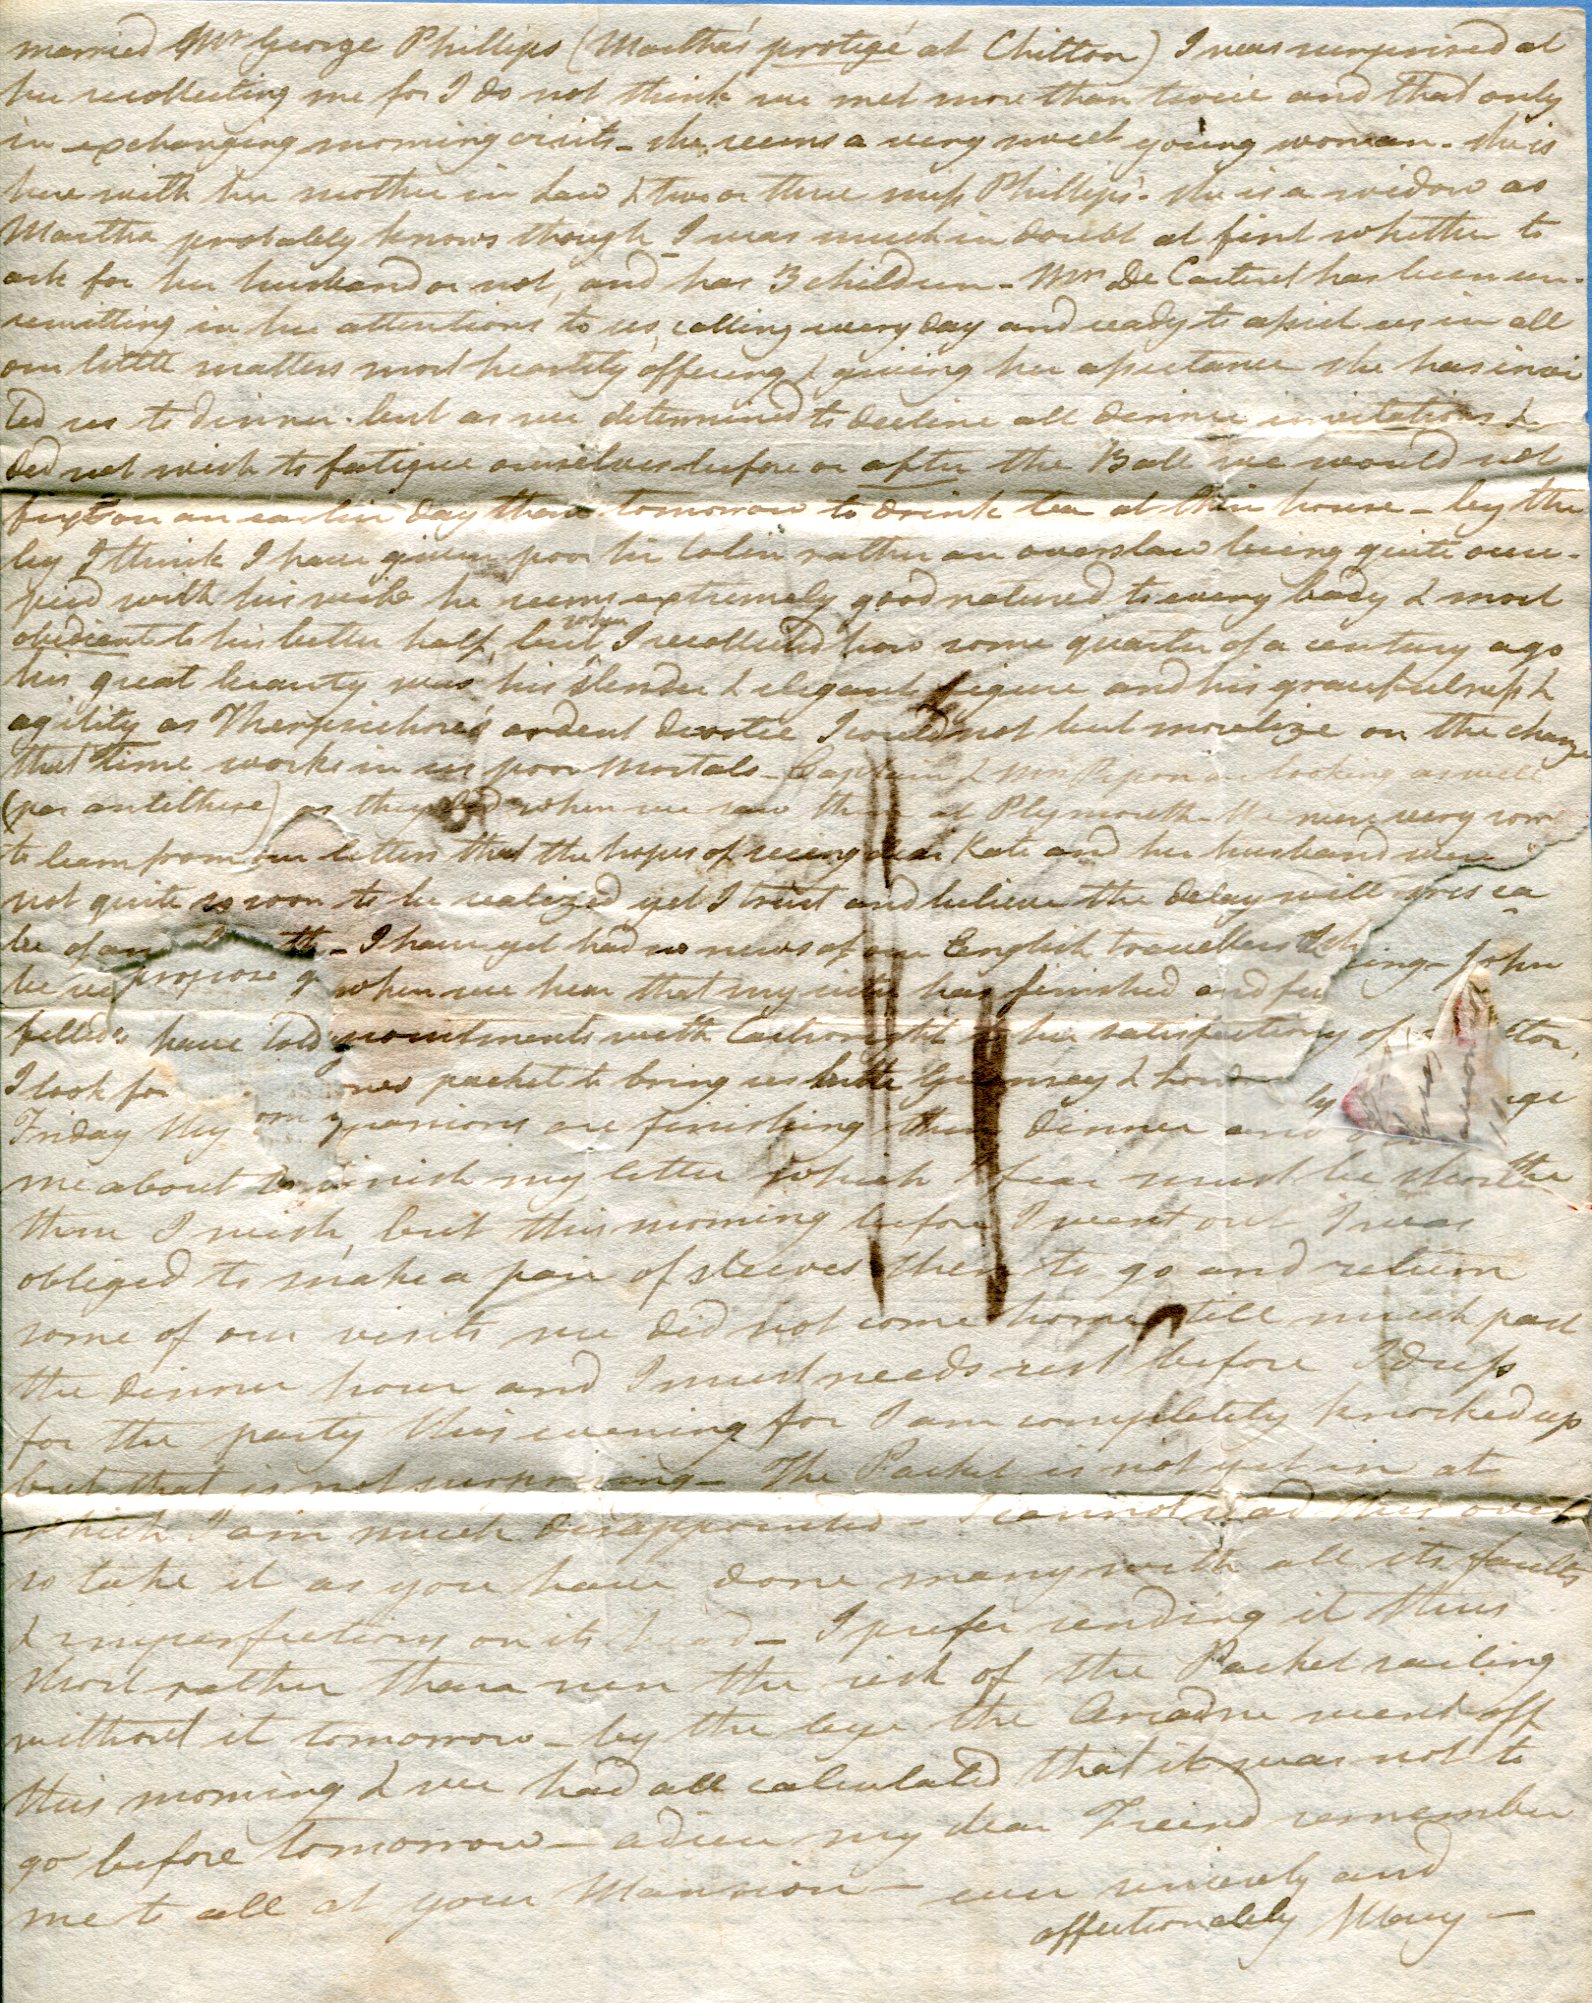 married Mr George Phillips (Martha's protigé at Chitton) I was surprised at
her recollecting me for I do not think we met more than twice and that only
in exchanging morning visits - she seems a very sweet young woman - she is
here with her mother in Law & two or three miss Phillips's - she is a widow as
Martha probably knows though I was much in doubt at first whether to
ask for her husband or not, and has 3 children - Mrs De Carteret has been un-
remitting in her attentions to us, calling every day and ready to assist us in all
our little matters most heartily offering & giving her assistance she has invi
ted us to dinner - but as we determined to decline all dinner invitations &
did not wish to fatigue ourselves before or after the Ball we would not
fix on an earlier day than tomorrow to drink tea at their house - by the
by I think I have given poor Sir Colin rather an overslaw being quite occu-
pied with his wife he seems extremely good natured to every body & most
obedient to his better half, but when I recollected how some quarter of a century ago
his great beauty was his slender & elegant figure and his gracefulness &
agility as Therpsichore's ardent devotee I could not but moralize on the change
that Time works in us poor mortals - Captain & Mrs Pipon are looking as well
(par antithese) as they did when we saw them at Plymouth - We were very sorry
to learn from our letters that the hopes of seeing dear Kate and her husband were
not quite so soon to be realized, yet I trust and believe the delay will
be of - I have yet had no news of our English travellers - John
propose when we hear that my sister has finished and
have told with Cartwright to her satisfaction of
I look for packet to bring us both Guernsey &
Friday My companions are finishing their dinner and
me about to finish my letter which I fear must be shorter
than I wish, but this morning before I went out I was
obliged to make a pair of sleeves then to go and return
some of our visits we did not come home till much past
the dinner hour and I must needs rest before I dress
for the party this evening for I am completely knocked up
but that is not surprising - The Packet is not yet in at
which I am much disappointed - I cannot read this over
so take it as you have done many with all its faults
& imperfections on its head - I prefer sending it thus
short rather than run the risk of the Packet sailing
without it tomorrow - by the bye the Ariadne went off
this morning & we had all calculated that it was not to
go before tomorrow - adieu my dear Friend remember
me to all at your Mansion - ever sincerely and
affectionately Mary -